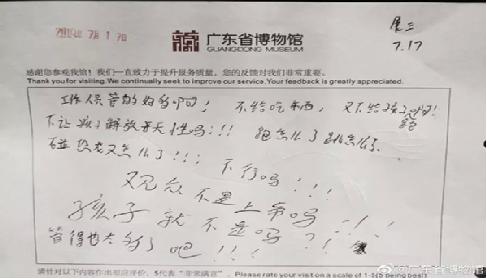 周三
7.17
广东省博物馆
GUANGDONG MUSEUM
感谢您参观我馆！我们一直致力于提升服务质量，您的反馈对我们非常重要。
Thank you for visiting. We continually seek to improve our service. Your feedback is greatly appreciated.
工作人员管的好多啊！不给吃东西，又不给孩子
不让孩子解放天性吗！！！跑怎么了
碰 怎么了！！！
不行吗！！！
观众不是上帝吗！！！
孩子就不是吗？！！
管得也太多了吧！！！
请您对以下内容作出相应评价，5代表“非常满意”
Please rate your visit on a scale of 1-5 (5 being best)
@广东省博物馆